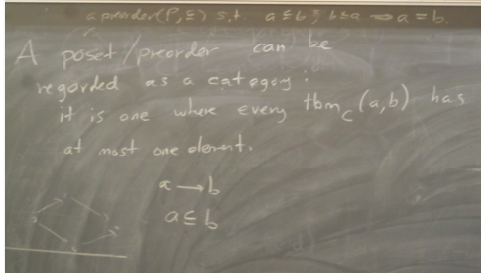 a preorder (P, ≤) s.t. a ≤ b & b ≤ a ⇒ a = b.
A poset/preorder can be
regarded as a category;
it is one where every Hom_C(a,b) has
at most one element.
a → b
a ≤ b